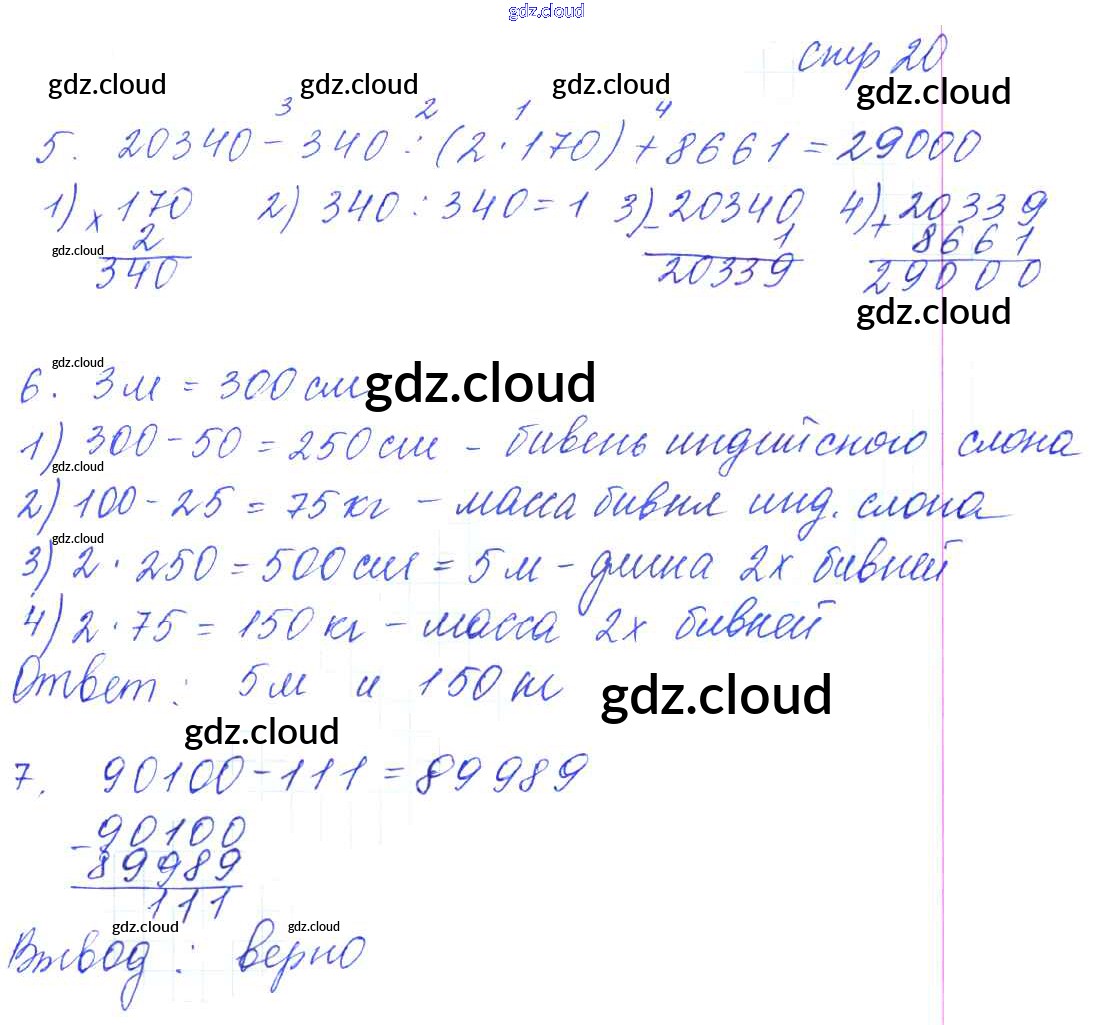 gdz.cloud
стр 20
gdz.cloud gdz.cloud gdz.cloud gdz.cloud
3 2 1 4
5. 20340 - 340 : (2 · 170) + 8661 = 29000
1) × 170 2) 340 : 340 = 1 3) - 20340 4) + 20339
2 1 8661
gdz.cloud
340 20339 29000
gdz.cloud
gdz.cloud
6. 3 м = 300 см gdz.cloud
1) 300 - 50 = 250 см - бивень индийского слона
gdz.cloud
2) 100 - 25 = 75 кг - масса бивня инд. слона
gdz.cloud
3) 2 · 250 = 500 см = 5 м - длина 2х бивней
4) 2 · 75 = 150 кг - масса 2х бивней
Ответ: 5 м и 150 кг gdz.cloud
gdz.cloud
7. 90100 - 111 = 89989
- 90100
89989
111
gdz.cloud gdz.cloud
Вывод: верно